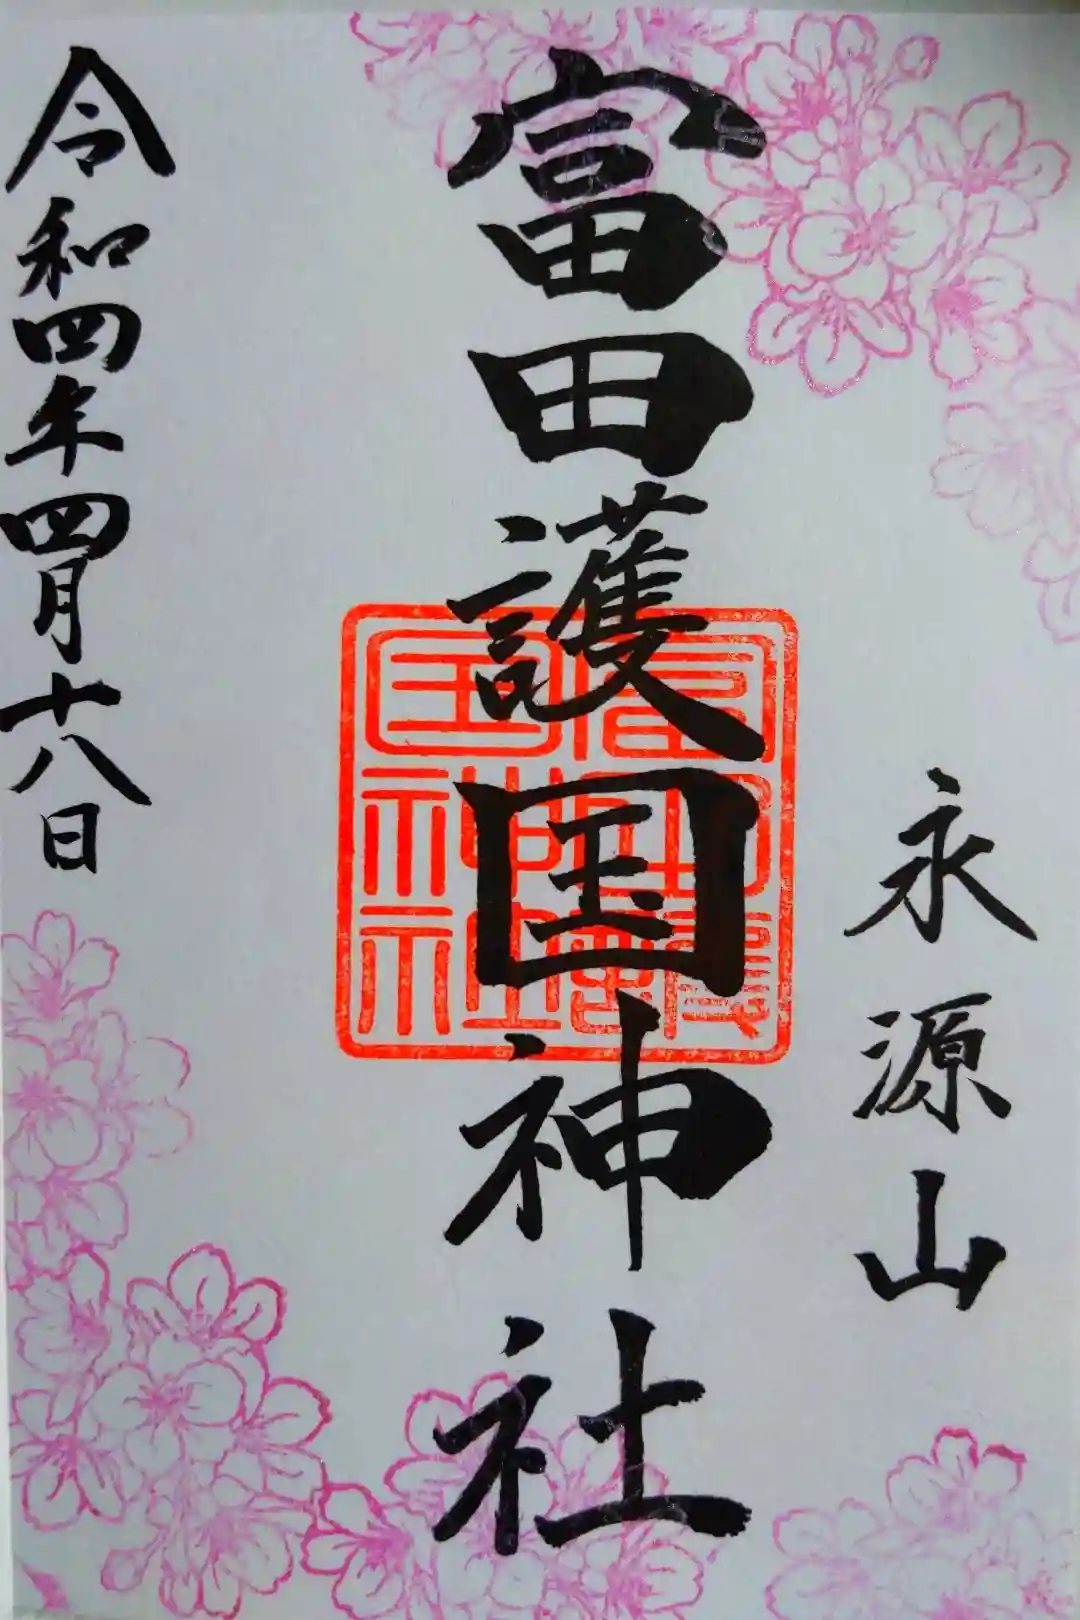 永源山
富田護国神社
富田護国神社
令和四年四月十八日